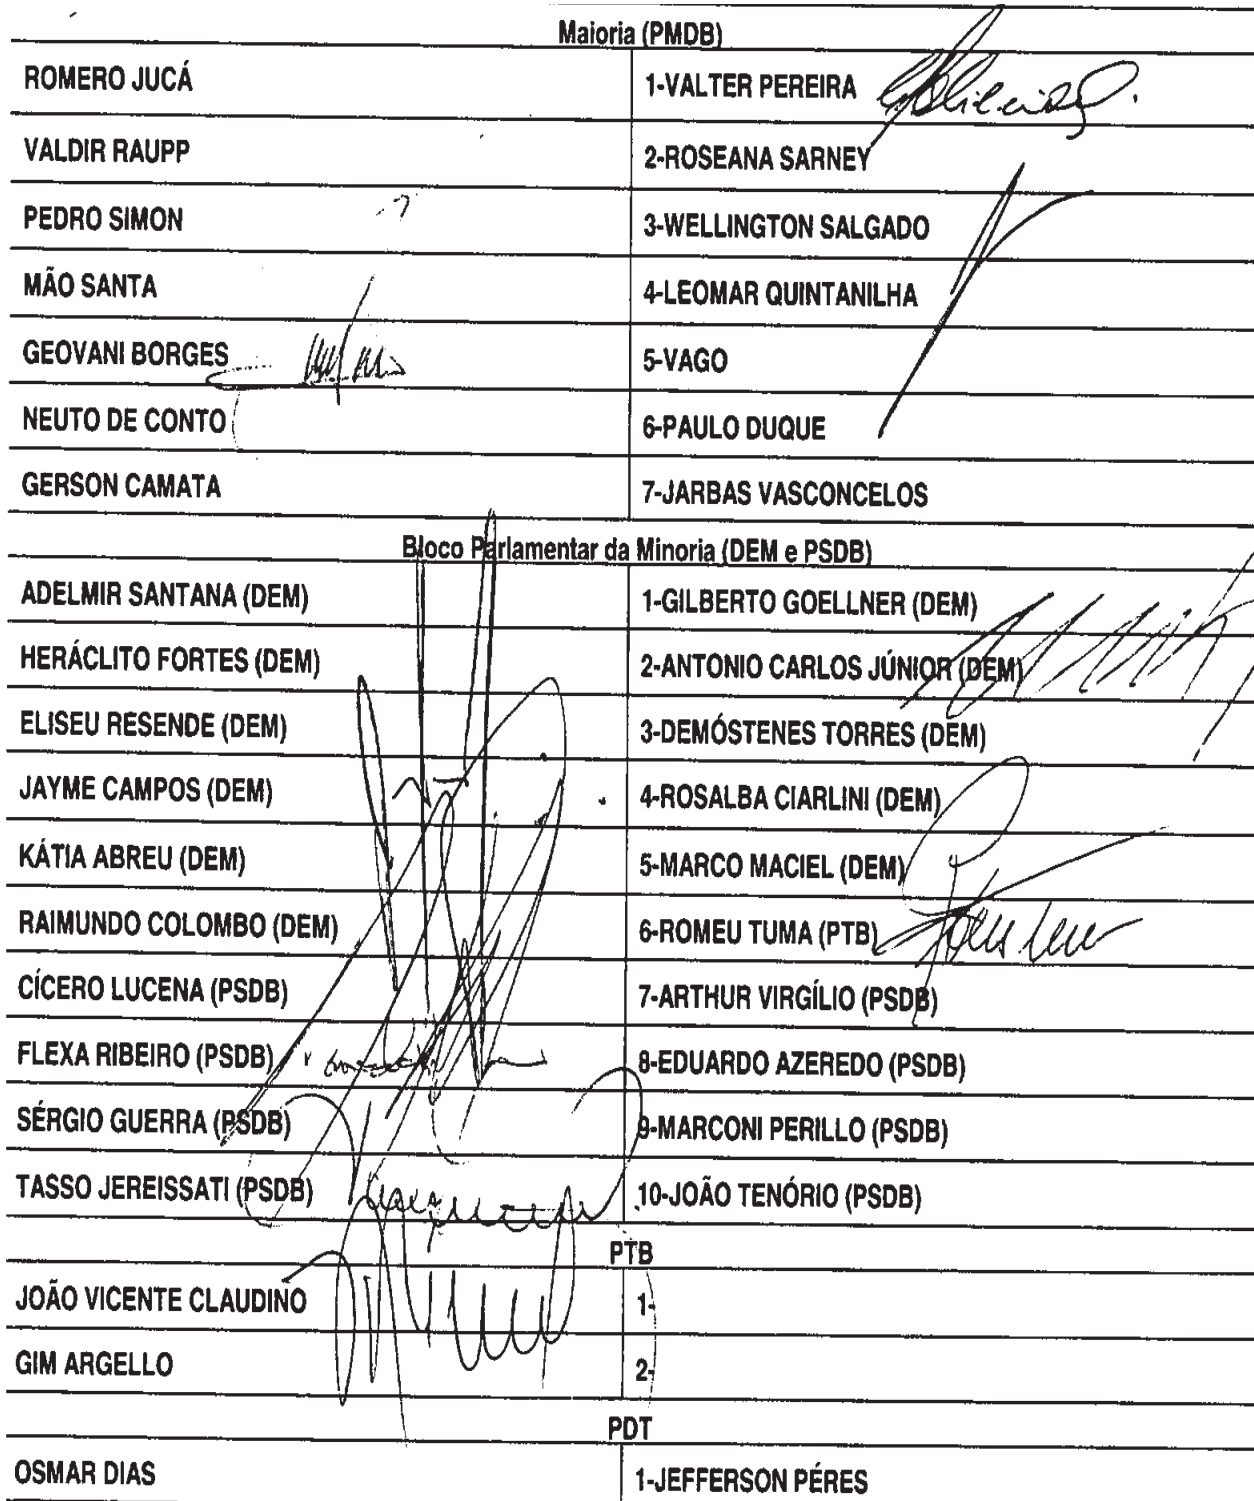 Maioria (PMDB)
ROMERO JUCÁ 1-VALTER PEREIRA
VALDIR RAUPP 2-ROSEANA SARNEY
PEDRO SIMON 3-WELLINGTON SALGADO
MÃO SANTA 4-LEOMAR QUINTANILHA
GEOVANI BORGES 5-VAGO
NEUTO DE CONTO 6-PAULO DUQUE
GERSON CAMATA 7-JARBAS VASCONCELOS
Bloco Parlamentar da Minoria (DEM e PSDB)
ADELMIR SANTANA (DEM) 1-GILBERTO GOELLNER (DEM)
HERÁCLITO FORTES (DEM) 2-ANTONIO CARLOS JÚNIOR (DEM)
ELISEU RESENDE (DEM) 3-DEMÓSTENES TORRES (DEM)
JAYME CAMPOS (DEM) 4-ROSALBA CIARLINI (DEM)
KÁTIA ABREU (DEM) 5-MARCO MACIEL (DEM)
RAIMUNDO COLOMBO (DEM) 6-ROMEU TUMA (PTB)
CÍCERO LUCENA (PSDB) 7-ARTHUR VIRGÍLIO (PSDB)
FLEXA RIBEIRO (PSDB) 8-EDUARDO AZEREDO (PSDB)
SÉRGIO GUERRA (PSDB) 9-MARCONI PERILLO (PSDB)
TASSO JEREISSATI (PSDB) 10-JOÃO TENÓRIO (PSDB)
PTB
JOÃO VICENTE CLAUDINO 1-
GIM ARGELLO 2-
PDT
OSMAR DIAS 1-JEFFERSON PÉRES